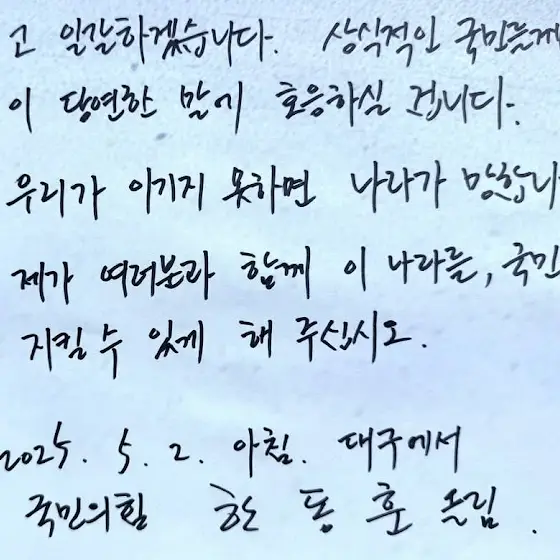 고 일갈하겠습니다. 상식적인 국민들께
이 당연한 말에 호응하실 겁니다.
우리가 이기지 못하면 나라가 망합니
제가 여러분과 함께 이 나라를, 국민
지킬 수 있게 해 주십시오.
2025. 5. 2. 아침. 대구에서
국민의힘 한 동 훈 올림.